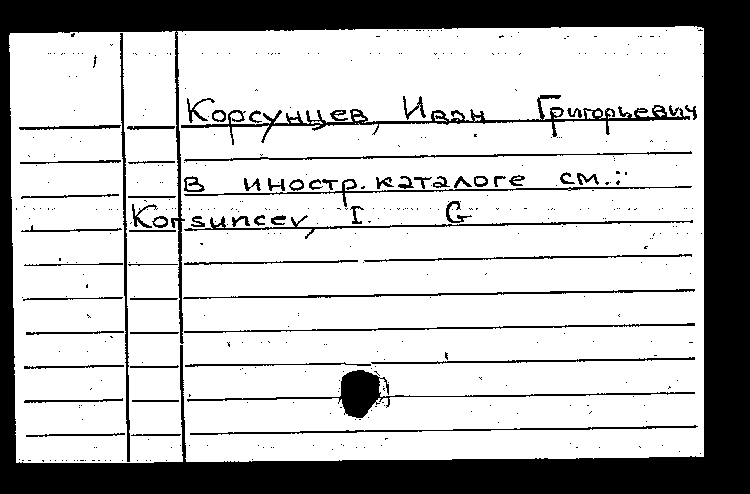 Корсунцев, Иван Григорьевич
в иностр. каталоге см.:
Korsuncev, I. G